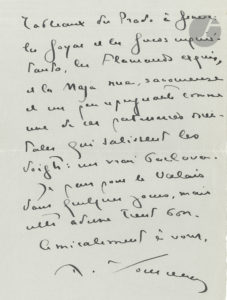 Tableaux du Prado à Genève
les Goyas et les Grecos
les Flamands exquis,
et la Maja nua, savoureuse
et un peu répugnante comme
une de ces
qui salissent les
doigts : un vrai baclava.
Je pars pour le Valais
dans quelques jours, mais
cette adresse tient bon.
Amicalement à vous,